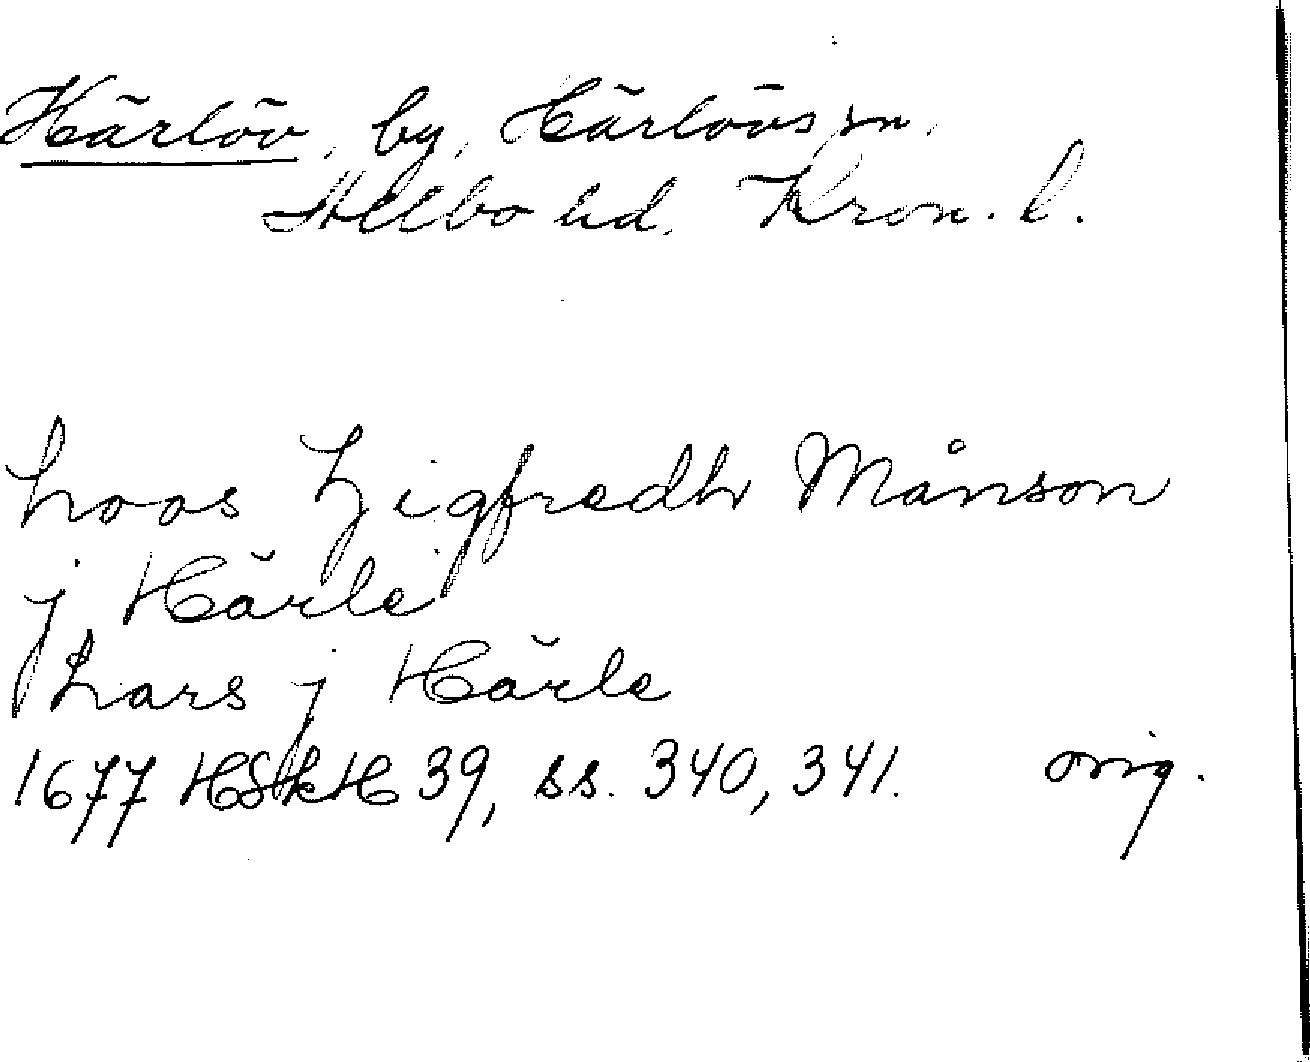 Härlöv, by, Härlövs sn,
Allbo hd, Kron. l.
hoos Zigfredh Månson
j Härle
Lars j Härle
1677 HSkH 39, ss. 340, 341. orig.